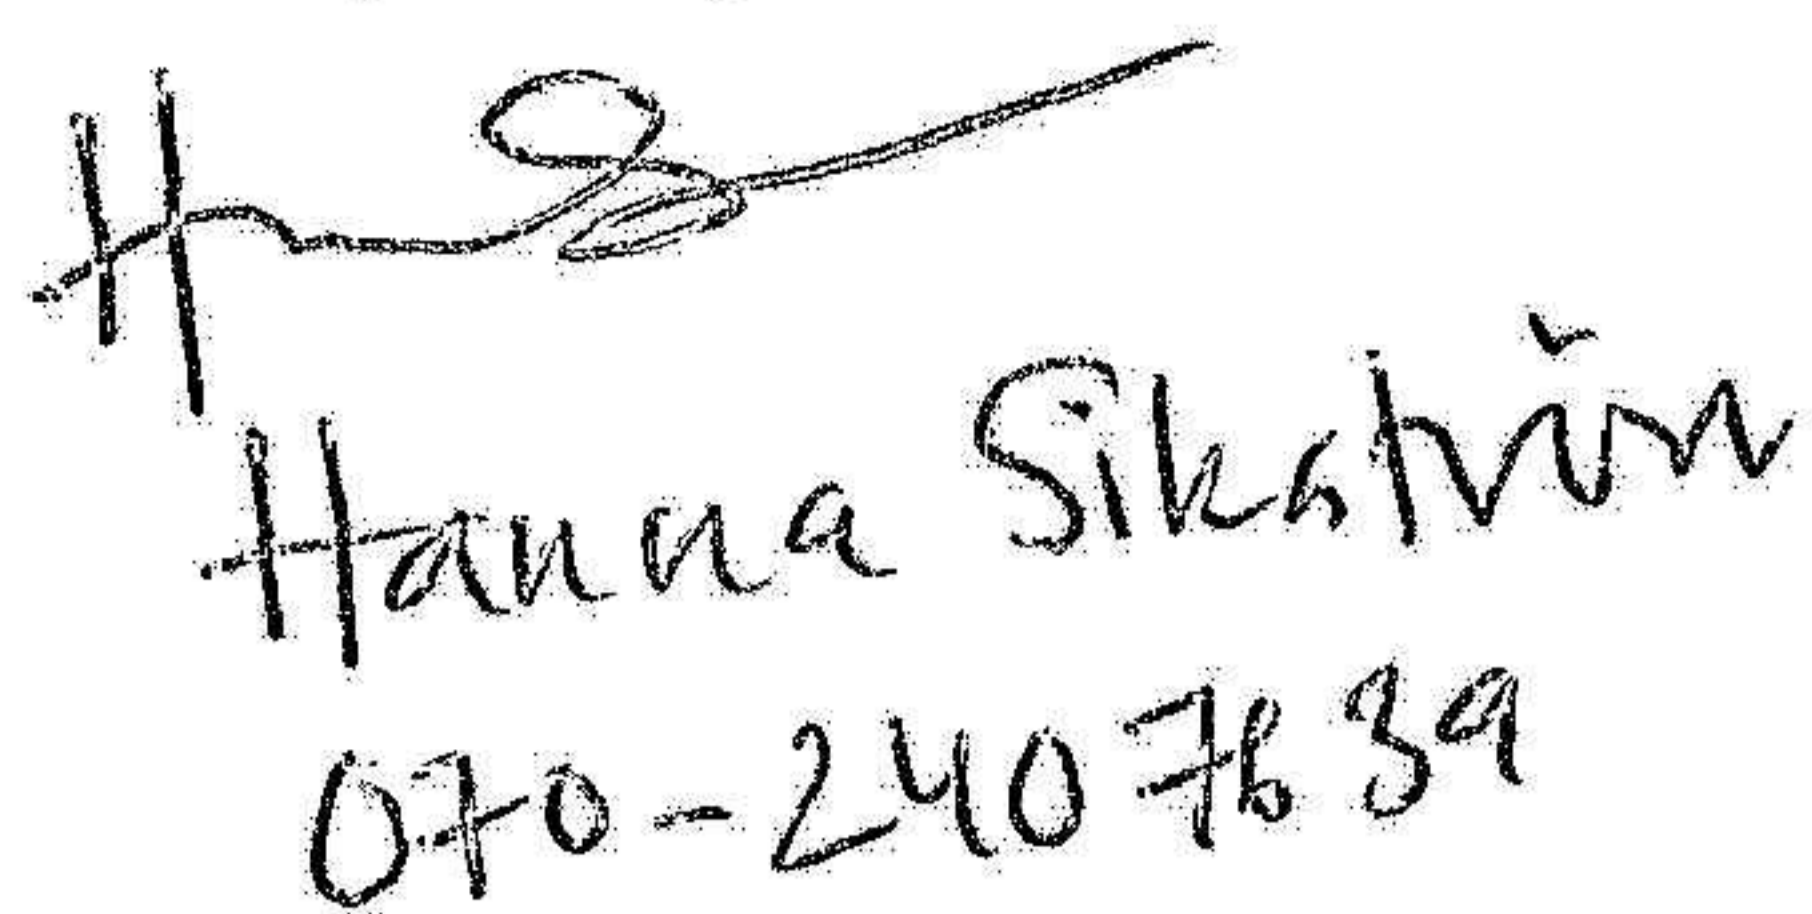 Hanna Sikström
070-240 76 39